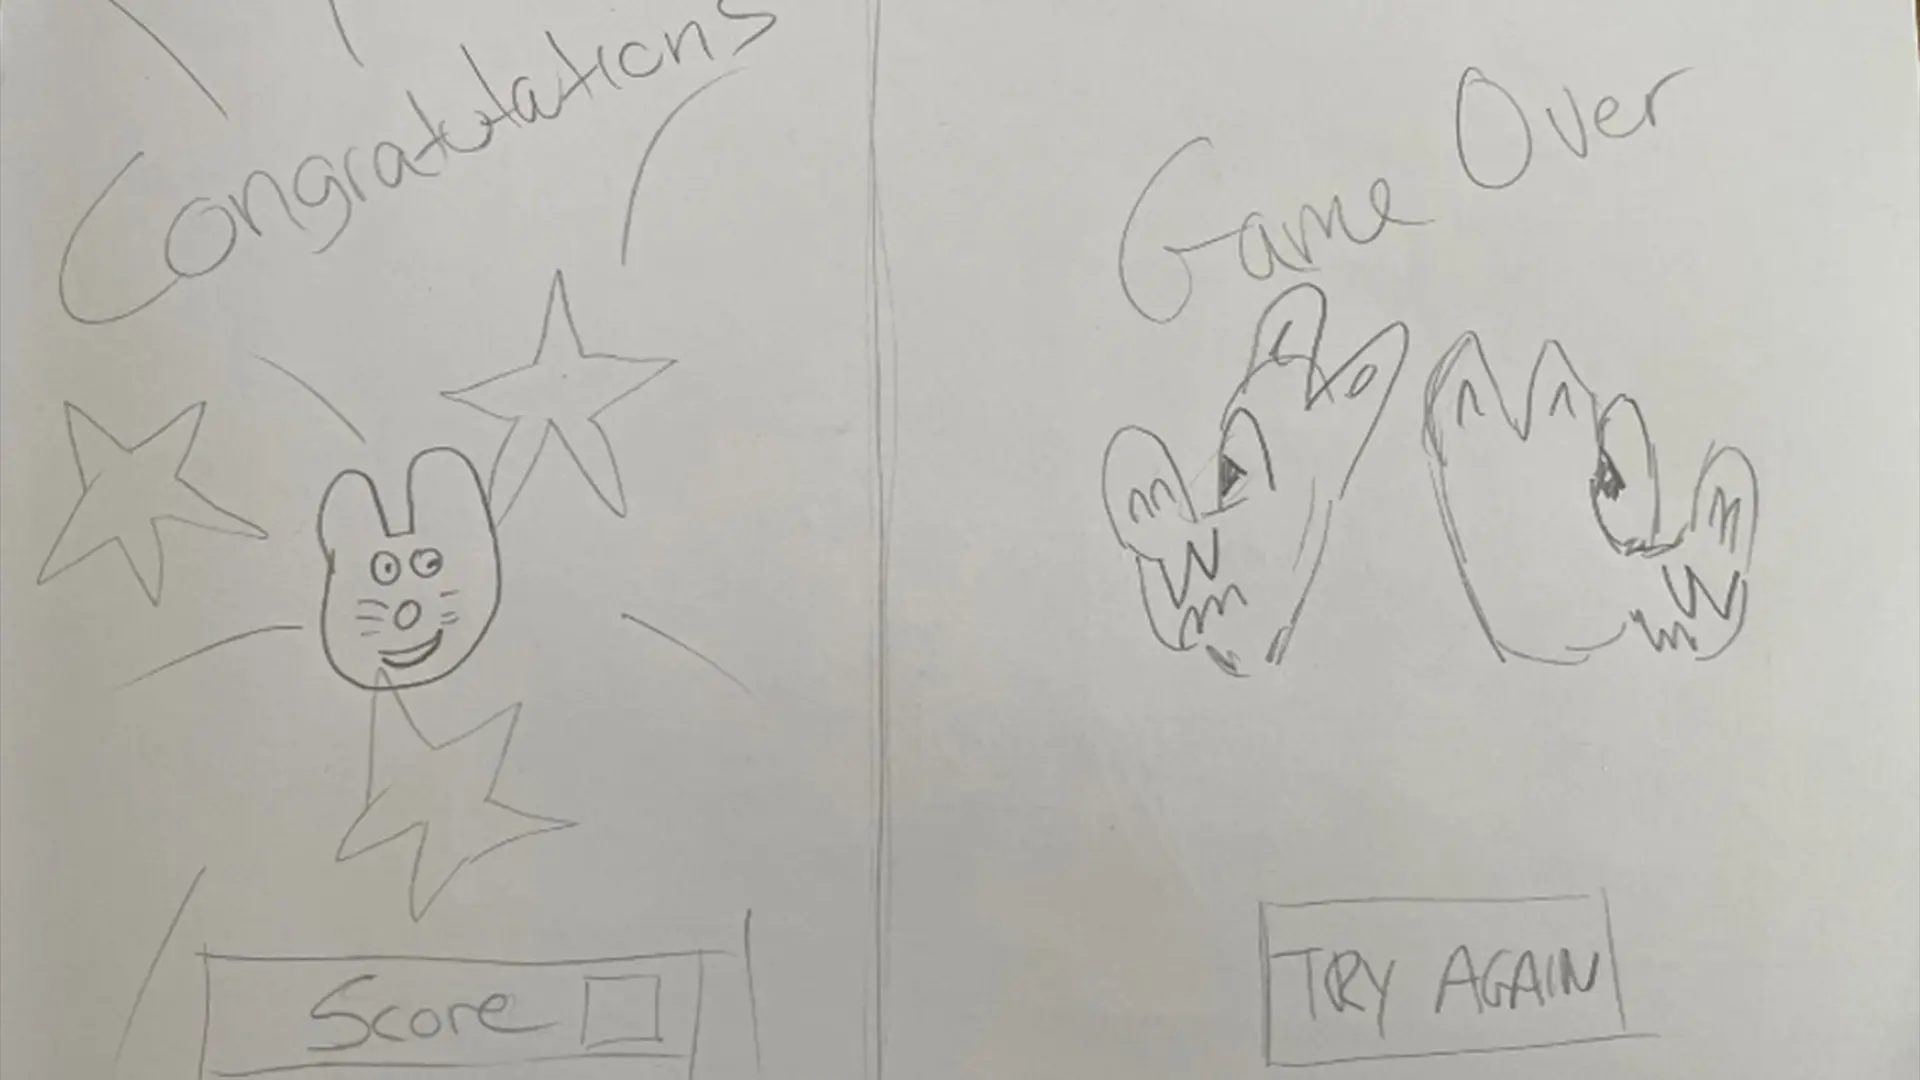 Congratulations
Score
Game Over
TRY AGAIN